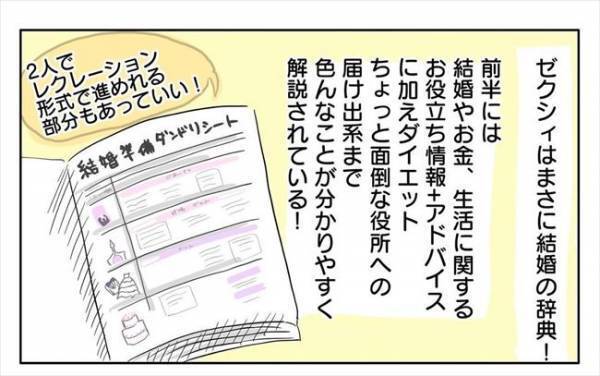 ゼクシィはまさに結婚の辞典！
前半には
結婚やお金、生活に関する
お役立ち情報+アドバイス
に加えダイエット
ちょっと面倒な役所への
届け出系まで
色んなことが分かりやすく
解説されている！
2人で
レクレーション
形式で進めれる
部分もあっていい！
結婚準備ダンドリシート